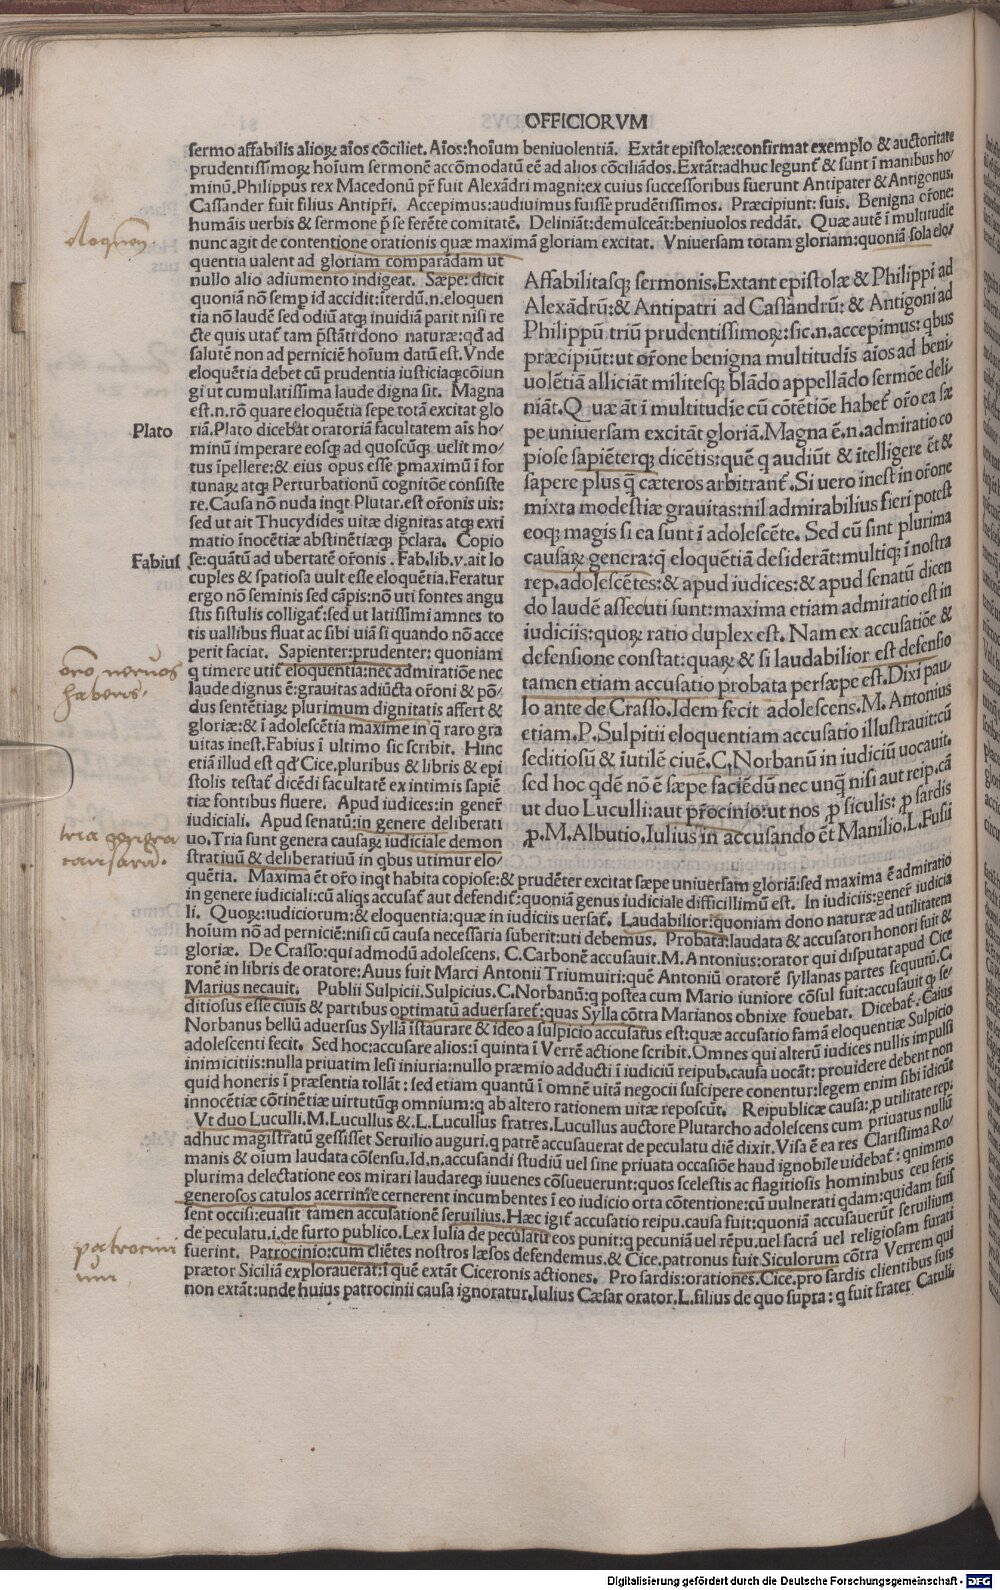 OFFICIORVM
sermo affabilis alioꝝ aīos cōciliet. Aīos: hoīum beniuolentiā. Extāt epistolæ: confirmat exemplo & auctoritate
prudentissimoꝝ hoīum sermonē accōmodatū eē ad alios cōciliādos. Extāt: adhuc legunt̄ & sunt ī manibus ho/
minū. Philippus rex Macedonū pr̄ fuit Alexādri magni: ex cuius successoribus fuerunt Antipater & Antigonus.
Cassander fuit filius Antipr̄i. Accepimus: audiuimus fuisse prudētissimos. Præcipiunt: suis. Benigna or̄one:
humāis uerbis & sermone p̄ se ferēte comitatē. Deliniāt: demulceāt: beniuolos reddāt. Quæ autē ī multitudie
nunc agit de contentione orationis quæ maximā gloriam excitat. Vniuersam totam gloriam: quoniā sola elo/
eloquen.
quentia ualent ad gloriam comparādam ut
nullo alio adiumento indigeat. Sæpe: dicit
quoniā nō semp id accidit: iterdū .n. eloquen
tia nō laudē sed odiū atqꝫ inuidiā parit nisi re
cte quis utat̄ tam p̄stāti dono naturæ: qd̄ ad
salutē non ad perniciē hoīum datū est. Vnde
eloquētia debet cū prudentia iusticiaqꝫ cōiun
gi ut cumulatissima laude digna sit. Magna
est .n. rō quare eloquētia sepe totā excitat glo
Plato
riā. Plato dicebāt oratoriā facultatem aīs ho/
minū imperare eosqꝫ ad quoscūqꝫ uelit mo/
tus īpellere: & eius opus esse p maximū ī for
tunaꝝ atqꝫ Perturbationū cognitōe consiste
re. Causa nō nuda inqt Plutar. est or̄onis uis:
sed ut ait Thucydides uitæ dignitas atqꝫ exti
matio īnocētiæ abstinētiæqꝫ p̄clara. Copio
Fabius
se: quātū ad ubertatē or̄onis. Fab. lib. v. ait lo
cuples & spatiosa uult esse eloquētia. Feratur
ergo nō seminis sed cāpis: nō uti fontes angu
stis fistulis colligat̄: sed ut latissimi amnes to
tis uallibus fluat ac sibi uiā si quando nō acce
perit faciat. Sapienter: prudenter: quoniam
oro neruos
haberes.
q timere utit̄ eloquentia: nec admiratiōe nec
laude dignus ē: grauitas adiūcta or̄oni & pō/
dus sentētiaꝝ plurimum dignitatis affert &
gloriæ: & ī adolescētia maxime in q̄ raro gra
uitas inest. Fabius ī ultimo sic scribit. Hinc
etiā illud est qd̄ Cice. pluribus & libris & epi
stolis testat̄ dicēdi facultatē ex intimis sapiē
tiæ fontibus fluere. Apud iudices: in gener̄
iudiciali. Apud senatū: in genere deliberati
tria genera
causarū.
uo. Tria sunt genera causaꝝ iudiciale demon
stratiuū & deliberatiuū in qbus utimur elo/
Affabilitasqꝫ sermonis. Extant epistolæ & Philippi ad
Alexādrū: & Antipatri ad Cassandrū: & Antigoni ad
Philippū triū prudentissimoꝝ: sic .n. accepimus: qbus
præcipiūt: ut or̄one benigna multitudis aīos ad beni-
uolētiā alliciāt militesqꝫ blādo appellādo sermōe deli-
niāt. Quæ āt ī multitudie cū cōtētiōe habet̄ or̄o ea sæ
pe uniuersam excitāt gloriā. Magna ē .n. admiratio co
piose sapiēterqꝫ dicētis: quē q audiūt & ītelligere ēt &
sapere plus q̄ cæteros arbitrant̄. Si uero inest in or̄one
mixta modestiæ grauitas: nil admirabilius fieri potest
eoqꝫ magis si ea sunt ī adolescēte. Sed cū sint plurima
causaꝝ genera: q̄ eloquētiā desiderāt: multiqꝫ ī nostra
rep. adolescētes: & apud iudices: & apud senatū dicen
do laudē assecuti sunt: maxima etiam admiratio est in
iudiciis: quoꝝ ratio duplex est. Nam ex accusatiōe &
defensione constat: quaꝝ & si laudabilior est defensio
tamen etiam accusatio probata persæpe est. Dixi pau/
lo ante de Crasso. Idem fecit adolescens. M. Antonius
etiam. P. Sulpitii eloquentiam accusatio illustrauit: cū
seditiosū & iutilē ciuē. C. Norbanū in iudiciū uocauit.
sed hoc qdē nō ē sæpe faciēdū nec unq̄ nisi aut reip. cā
ut duo Luculli: aut pr̄ocinio: ut nos ꝓ siculis: ꝓ sardis
ꝓ. M. Albutio. Iulius in accusando ēt Manilio. L. Fusii
quētia. Maxima ēt or̄o inqt habita copiose: & prudēter excitat sæpe uniuersam gloriā: sed maxima ē admiratio
in genere iudiciali: cū aliqs accusat̄ aut defendit̄: quoniā genus iudiciale difficillimū est. In iudiciis: gener̄ iudicia
li. Quoꝝ: iudiciorum: & eloquentia: quæ in iudiciis uersat̄. Laudabilior: quoniam dono naturæ ad utilitatem
hoīum nō ad perniciē: nisi cū causa necessaria suberit: uti debemus. Probata: laudata & accusatori honori fuit &
gloriæ. De Crasso: qui admodū adolescens. C. Carbonē accusauit. M. Antonius: orator qui disputat apud Cice
ronē in libris de oratore: Auus fuit Marci Antonii Triumuiri: quē Antoniū oratorē syllanas partes sequutū. C.
Marius necauit. Publii Sulpicii. Sulpicius. C. Norbanū: q postea cum Mario iuniore cōsul fuit: accusauit qꝫ se/
ditiosus esse ciuis & partibus optimatū aduersaret̄: quas Sylla cōtra Marianos obnixe fouebat. Dicebat̄. Caius
Norbanus bellū aduersus Syllā īstaurare & ideo a sulpicio accusatus est: quæ accusatio famā eloquentiæ Sulpicio
adolescenti fecit. Sed hoc: accusare alios: ī quinta ī Verrē actione scribit. Omnes qui alterū iudices nullis impulsi
inimicitiis: nulla priuatim lesi iniuria: nullo præmio adducti ī iudiciū reipub. causa uocāt: prouidere debent non
quid honeris ī præsentia tollāt: sed etiam quantū ī omnē uitā negocii suscipere conentur: legem enim sibi idicūt
innocētiæ cōtinētiæ uirtutūqꝫ omnium: q ab altero rationem uitæ reposcūt. Reipublicæ causa: ꝓ utilitate rep.
Vt duo Luculli. M. Lucullus & .L. Lucullus fratres. Lucullus auctore Plutarcho adolescens cum priuatus nullū
adhuc magistratū gessisset Seruilio auguri. q patrē accusauerat de peculatu diē dixit. Visa ē ea res Clarissima Ro/
manis & oium laudata cōsensu. Id .n. accusandi studiū uel sine priuata occasiōe haud ignobile uidebat̄: qnimmo
plurima delectatione eos mirari laudareqꝫ iuuenes cōsueuerunt: quos scelestis ac flagitiosis hominibus ceu feris
generosos catulos acerrime cernerent incumbentes ī eo iudicio orta cōtentione: cū uulnerati qdam: quidam fuis
sent occisi: euasit tamen accusationē seruilius. Hæc igit̄ accusatio reipu. causa fuit: quoniā accusauerūt seruilium
patrocini
um
de peculatu .i. de furto publico. Lex Iulia de peculatu eos punit: q pecuniā uel rēpu. uel sacrā uel religiosam furati
fuerint. Patrocinio: cum cliētes nostros læsos defendemus. & Cice. patronus fuit Siculorum cōtra Verrem qui
prætor Siciliā explorauerat: ī quē extāt Ciceronis actiones. Pro sardis: orationes. Cice. pro sardis clientibus suis
non extāt: unde huius patrocinii causa ignoratur. Iulius Cæsar orator. L. filius de quo supra: q fuit frater Catuli.
Digitalisierung gefördert durch die Deutsche Forschungsgemeinschaft - DFG